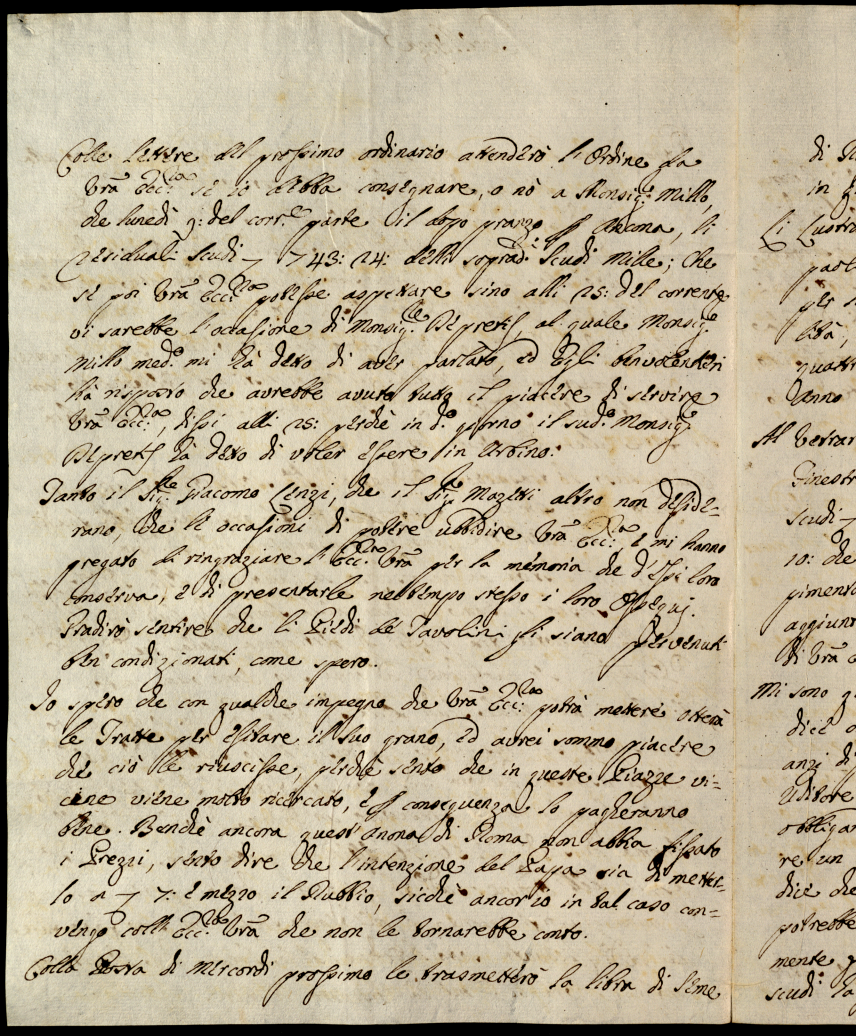 Colle lettere del prossimo ordinario attenderò l'Ordine se
Vrã Ecc:za se io debba consegnare, o nò a Monsig:r Millo,
che lunedì 9: del corr:te parte il dopo pranzo p Ancona, li
residuali Scudi 743: 24: delli soprad:i Scudi Mille; Che
se poi Vrã Ecc:za potesse aspettare sino alli 25: del corrente
vi sarebbe l'occasione di Monsig:re Depretis, al quale Monsig:r
Millo med:o mi hà detto di aver parlato, ed Egli benvolentieri
hà risposto che avrebbe avuto tutto il piacere di servire
Vrã Ecc:za, dissi alli 25: perchè in d:o giorno il sud:o Monsig:r
Depretis hà detto di voler essere in Urbino:
Tanto il Sig:re Giacomo Lenzi, che il Sig:r Mazetti altro non deside=
rano, che le occasioni di potere ubbidire Vrã Ecc:za, e mi hanno
pregato di ringraziare l'Ecc:za Vrã per la memoria che d'Essi loro
conserva, e di presentarle nel tempo stesso i loro Ossequj.
Gradirò sentire che li Piedi de Tavolini gli siano pervenuti
ben condizionati, come spero.
Io spero che con qualche impegno che Vrã Ecc:za potrà mettere otterrà
le Tratte per esitare il suo grano, ed avrei sommo piacere
che ciò le riuscisse, perchè sento che in queste Piazze vi=
cine viene molto ricercato, e p conseguenza lo pagheranno
bene. Benchè ancora quest'anona di Roma non abbia fissato
i Prezzi, sento dire che l'intenzione del Papa sia di metter=
lo a 7: e mezzo il Rubbio, sicchè ancor io in tal caso con=
vengo coll' Ecc:za Vrã che non le tornarebbe conto.
Colla Posta di Mercordì prossimo le trasmetterò la libra di Seme
di
in
Li Lustri
per
libà,
quattr
Vanno
Al Vetrar
Finestr
scudi
10: che
piment
aggiunt
di Vrã
Mi sono
dice
anzi di
Uditore
obbligar
re un
dice che
potrebbe
mente
scudi